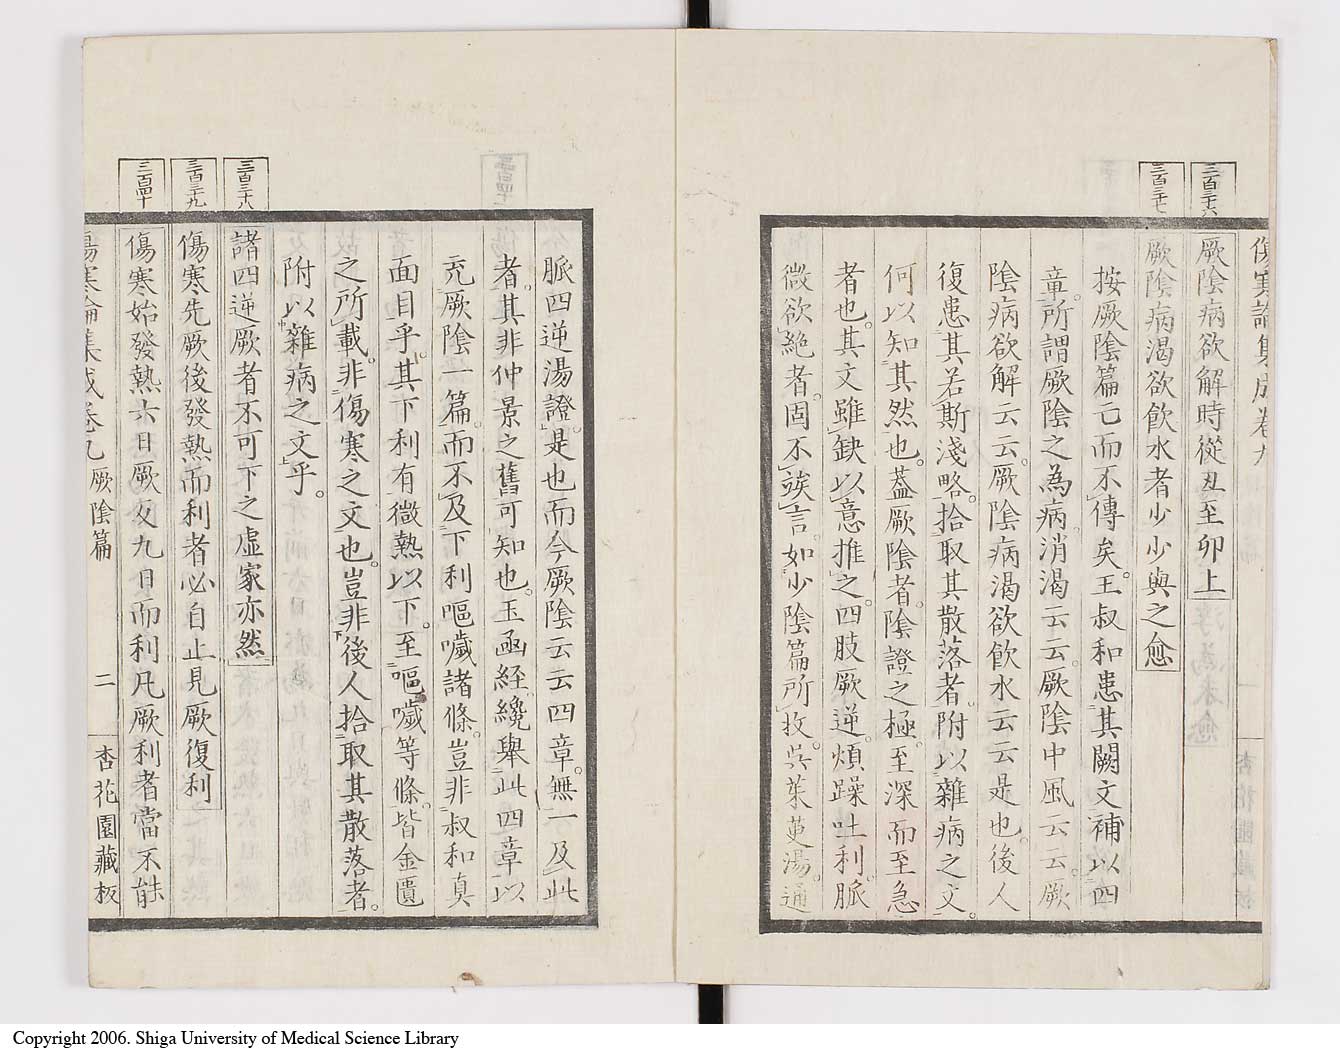 傷寒論集成卷九
三百三十六
厥陰病欲解時從丑至卯上
三百三十七
厥陰病渴欲飮水者少少與之愈
按厥陰篇亡而不傳矣王叔和患其闕文補以四
章所謂厥陰之為病消渴云云厥陰中風云云厥
陰病欲解云云厥陰病渴欲飮水云云是也後人
復患其若斯淺略拾取其散落者附以雜病之文
何以知其然也蓋厥陰者陰證之極至深而至急
者也其文雖缺以意推之四肢厥逆煩躁吐利脈
微欲絕者固不竢言如少陰篇所收吳茱萸湯通
脈四逆湯證是也而今厥陰云云四章無一及此
者其非仲景之舊可知也玉函經纔舉此四章以
充厥陰一篇而不及下利嘔噦諸條豈非叔和真
面目乎其下利有微熱以下至嘔噦等條皆金匱
之所載非傷寒之文也豈非後人拾取其散落者
附以雜病之文乎
三百三十八
諸四逆厥者不可下之虛家亦然
三百三十九
傷寒先厥後發熱而利者必自止見厥復利
三百四十
傷寒始發熱六日厥反九日而利凡厥利者當不能
傷寒論集成卷九 厥陰篇 二 杏花園藏板
Copyright 2006. Shiga University of Medical Science Library